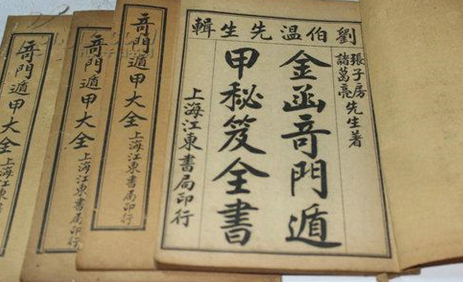 劉伯温先生輯
張子房
諸葛亮先生著
金函奇門遁
甲秘笈全書
上海江東書局印行
奇門遁甲大全
上海江東書局印行
奇門遁甲大全
上海江東書局印行
奇門遁甲大全